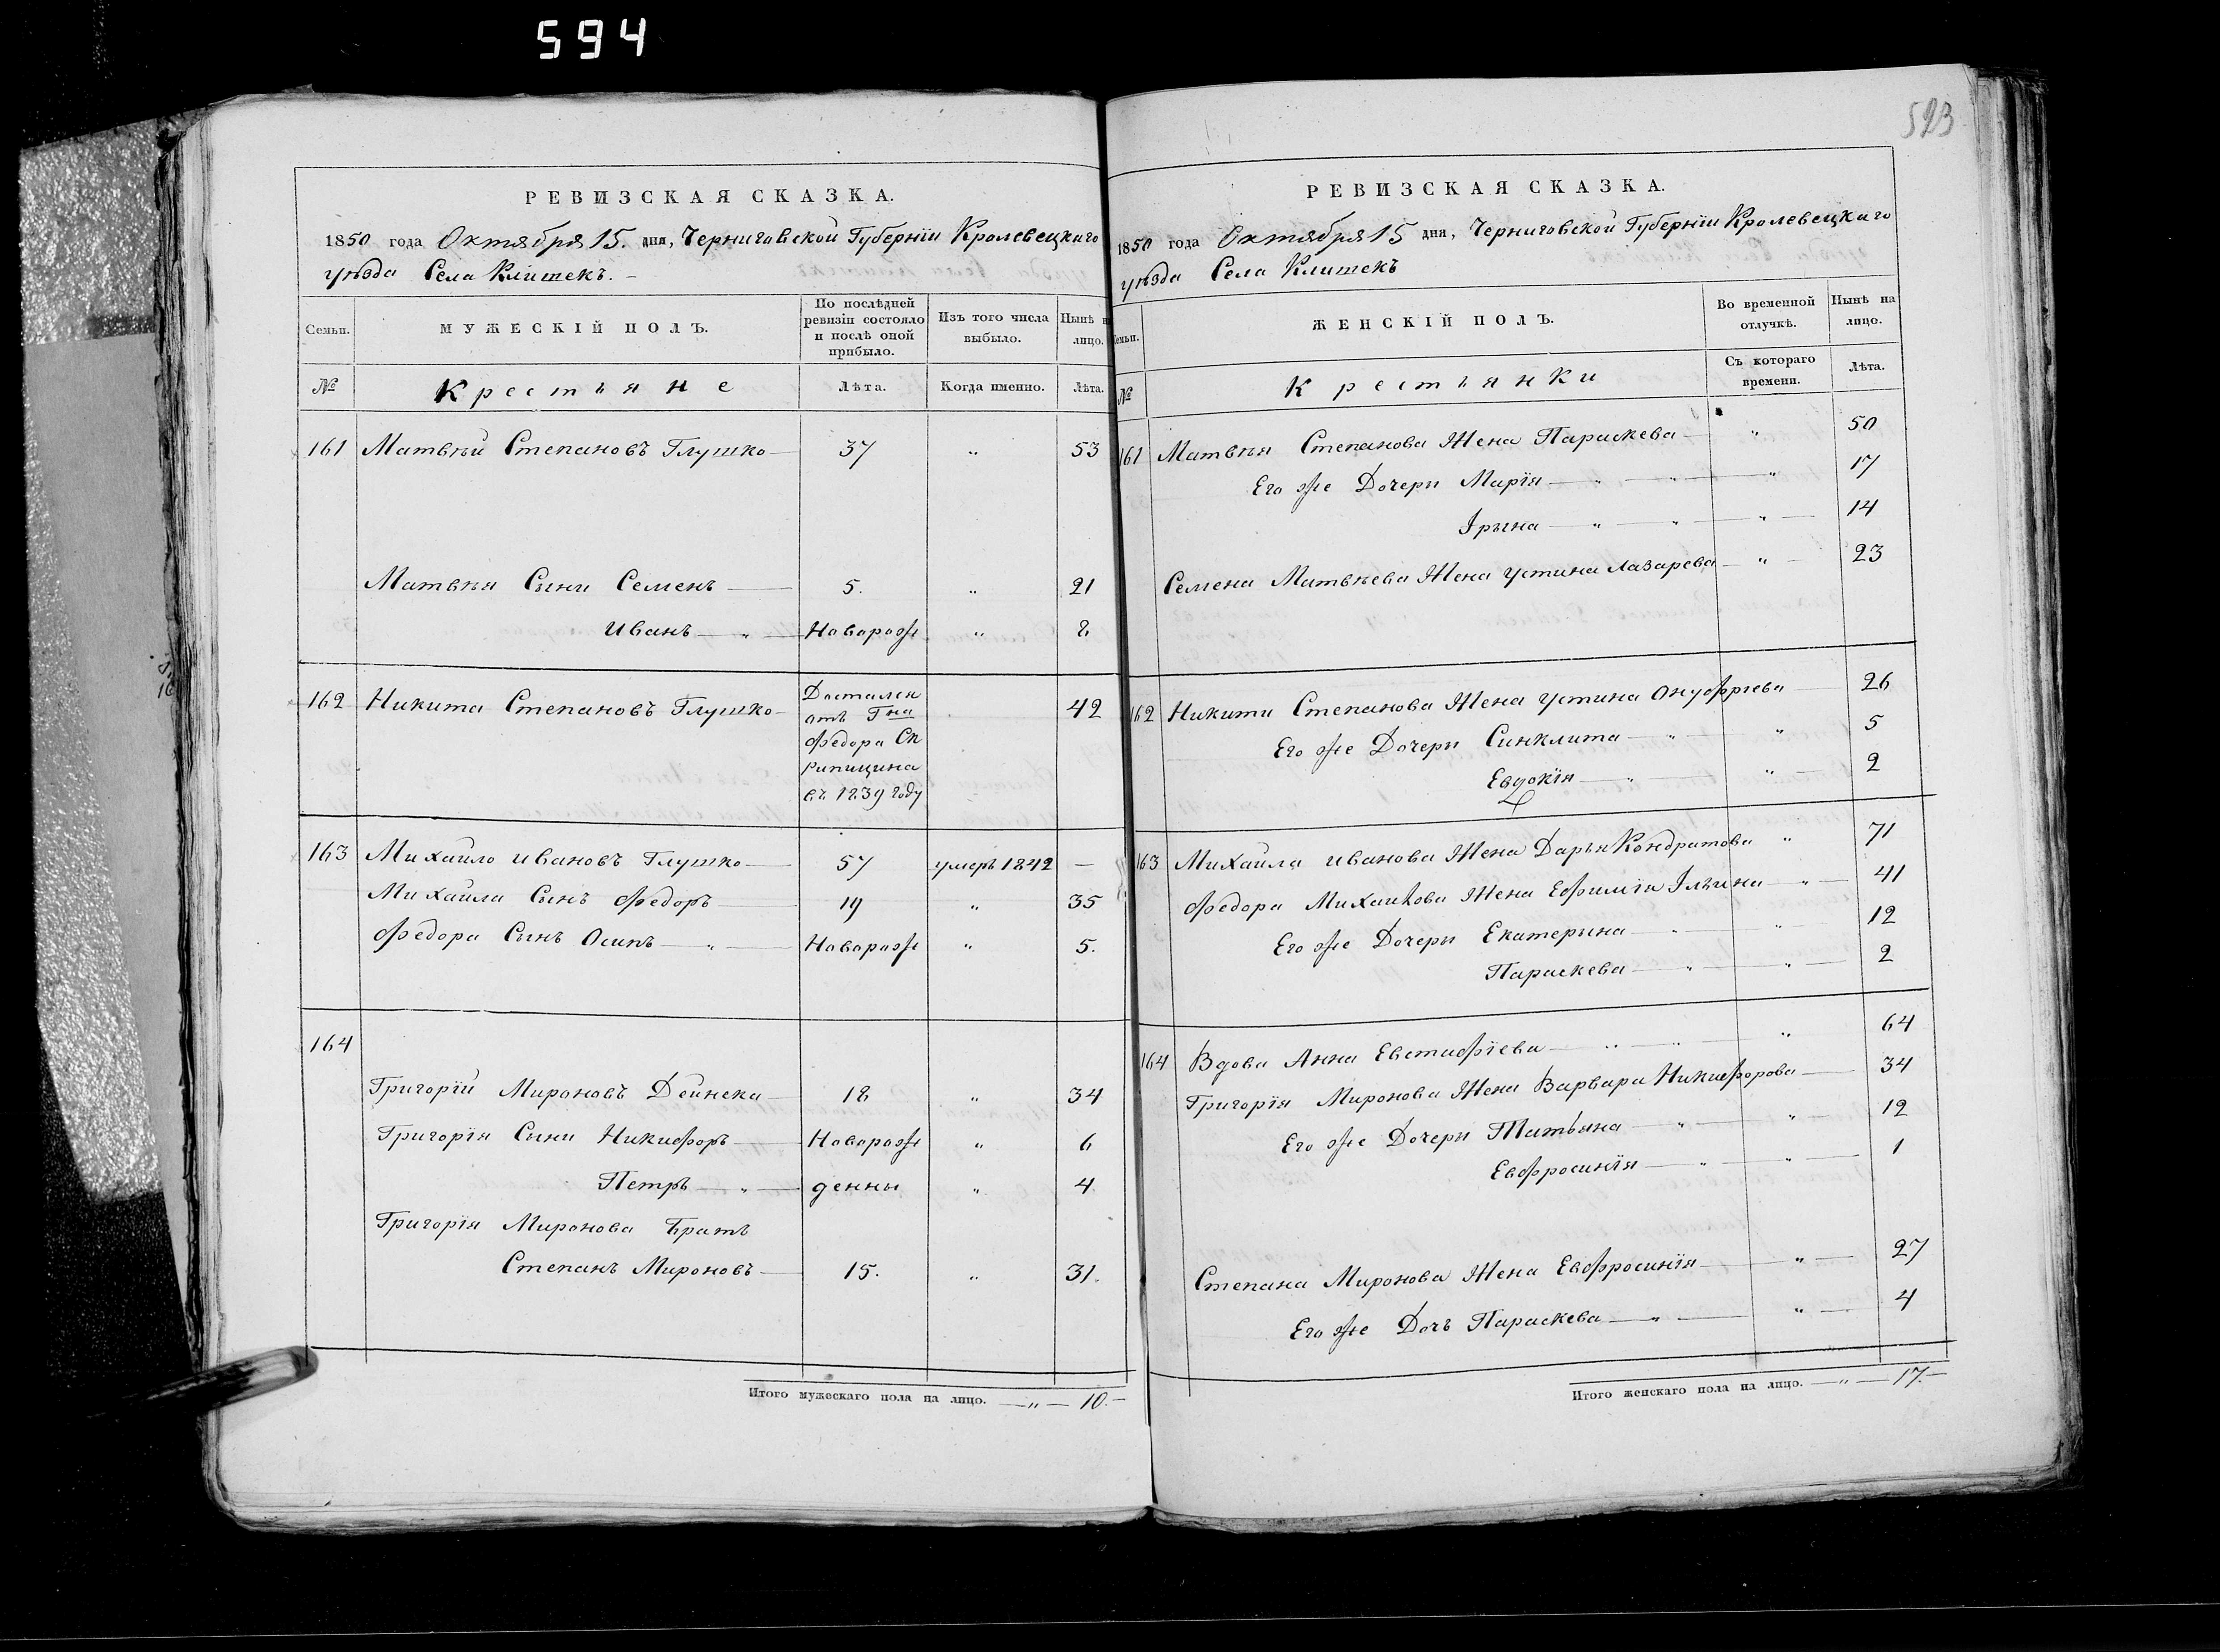 594
523
РЕВИЗСКАЯ СКАЗКА.
1850 года Октября 15. дня, Черниговской Губерніи Кролевецкаго
уѣзда Села Клишекъ. –
Семьи. МУЖЕСКІЙ ПОЛЪ. По послѣдней ревизіи состояло и послѣ оной прибыло. Изъ того числа выбыло. Нынѣ на лицо.
№ Крестьяне Лѣта. Когда именно. Лѣта.
161 Матвѣй Степановъ Глушко 37 „ 53
Матвѣя Сыни Семенъ 5. „ 21
Иванъ „ Новорож „ 8
162 Никита Степановъ Глушко Достален 42
отъ Гна
Федора Ск
рипицина
въ 1839 году
163 Михайло Ивановъ Глушко 57 умеръ 1842 —
Михайла Сынъ Федоръ 19 „ 35
Федора Сынъ Осипъ „ Новорож „ 5.
164
Григорій Мироновъ Дейнека 18 „ 34
Григорія Сыни Никифоръ Новорож „ 6
Петръ „ денны „ 4
Григорія Миронова Братъ
Степанъ Мироновъ 15. „ 31.
Итого мужескаго пола на лицо. — „ — 10. —
РЕВИЗСКАЯ СКАЗКА.
1850 года Октября 15 дня, Черниговской Губерніи Кролевецкаго
уѣзда Села Клишекъ
Семьи. ЖЕНСКІЙ ПОЛЪ. Во временной отлучкѣ. Нынѣ на лицо.
№ Крестьянки Съ котораго времени. Лѣта.
161 Матвѣя Степанова Жена Параскева „ 50
Его же Дочери Марія „ „ „ 17
Ірына „ „ „ 14
Семена Матвѣева Жена Устина Лазарева „ 23
162 Никити Степанова Жена Устина Онуфріева 26
Его же Дочери Синклита „ „ 5
Евдокія „ „ 2
163 Михайла Иванова Жена Дарья Кондратова „ 71
Федора Михайлова Жена Ефимія Ілъина „ 41
Его же Дочери Екатерына „ „ 12
Параскева „ „ 2
164 Вдова Анна Евстафіева „ „ „ 64
Григорія Миронова Жена Варвара Никифорова 34
Его же Дочери Татьяна „ „ 12
Евфросинія „ „ 1
Степана Миронова Жена Евфросинія „ 27
Его же Дочъ Параскева „ „ 4
Итого женскаго пола на лицо. — „ — 17. —